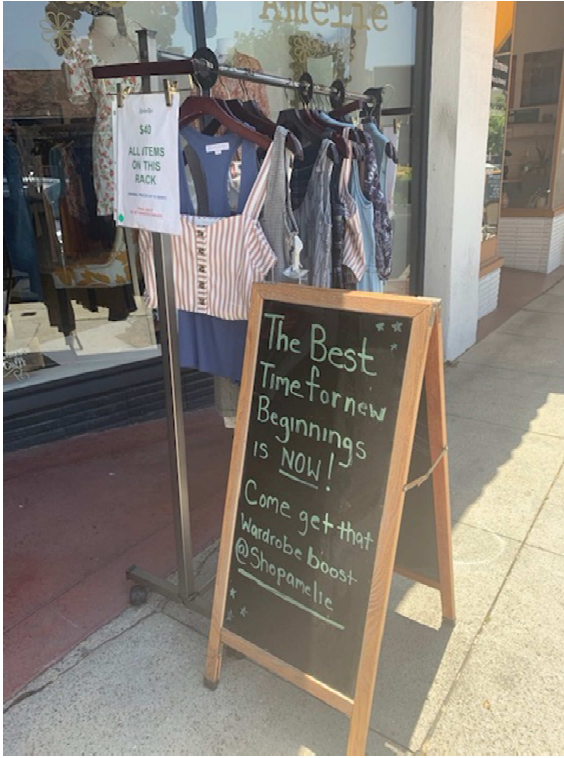 Amelie
$40
ALL ITEMS
ON THIS
RACK
The Best
Time for new
Beginnings
is NOW!
Come get that
Wardrobe boost
@Shopamelie